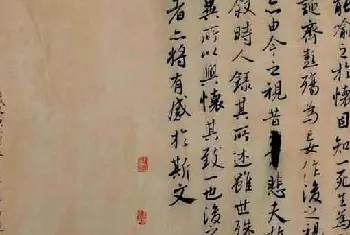 能喻之於懷固知一死生為
誕齊彭殤為妄作後之視
亦由今之視昔悲夫故
敘時人錄其所述雖世殊
異所以興懷其致一也後之
者亦將有感於斯文